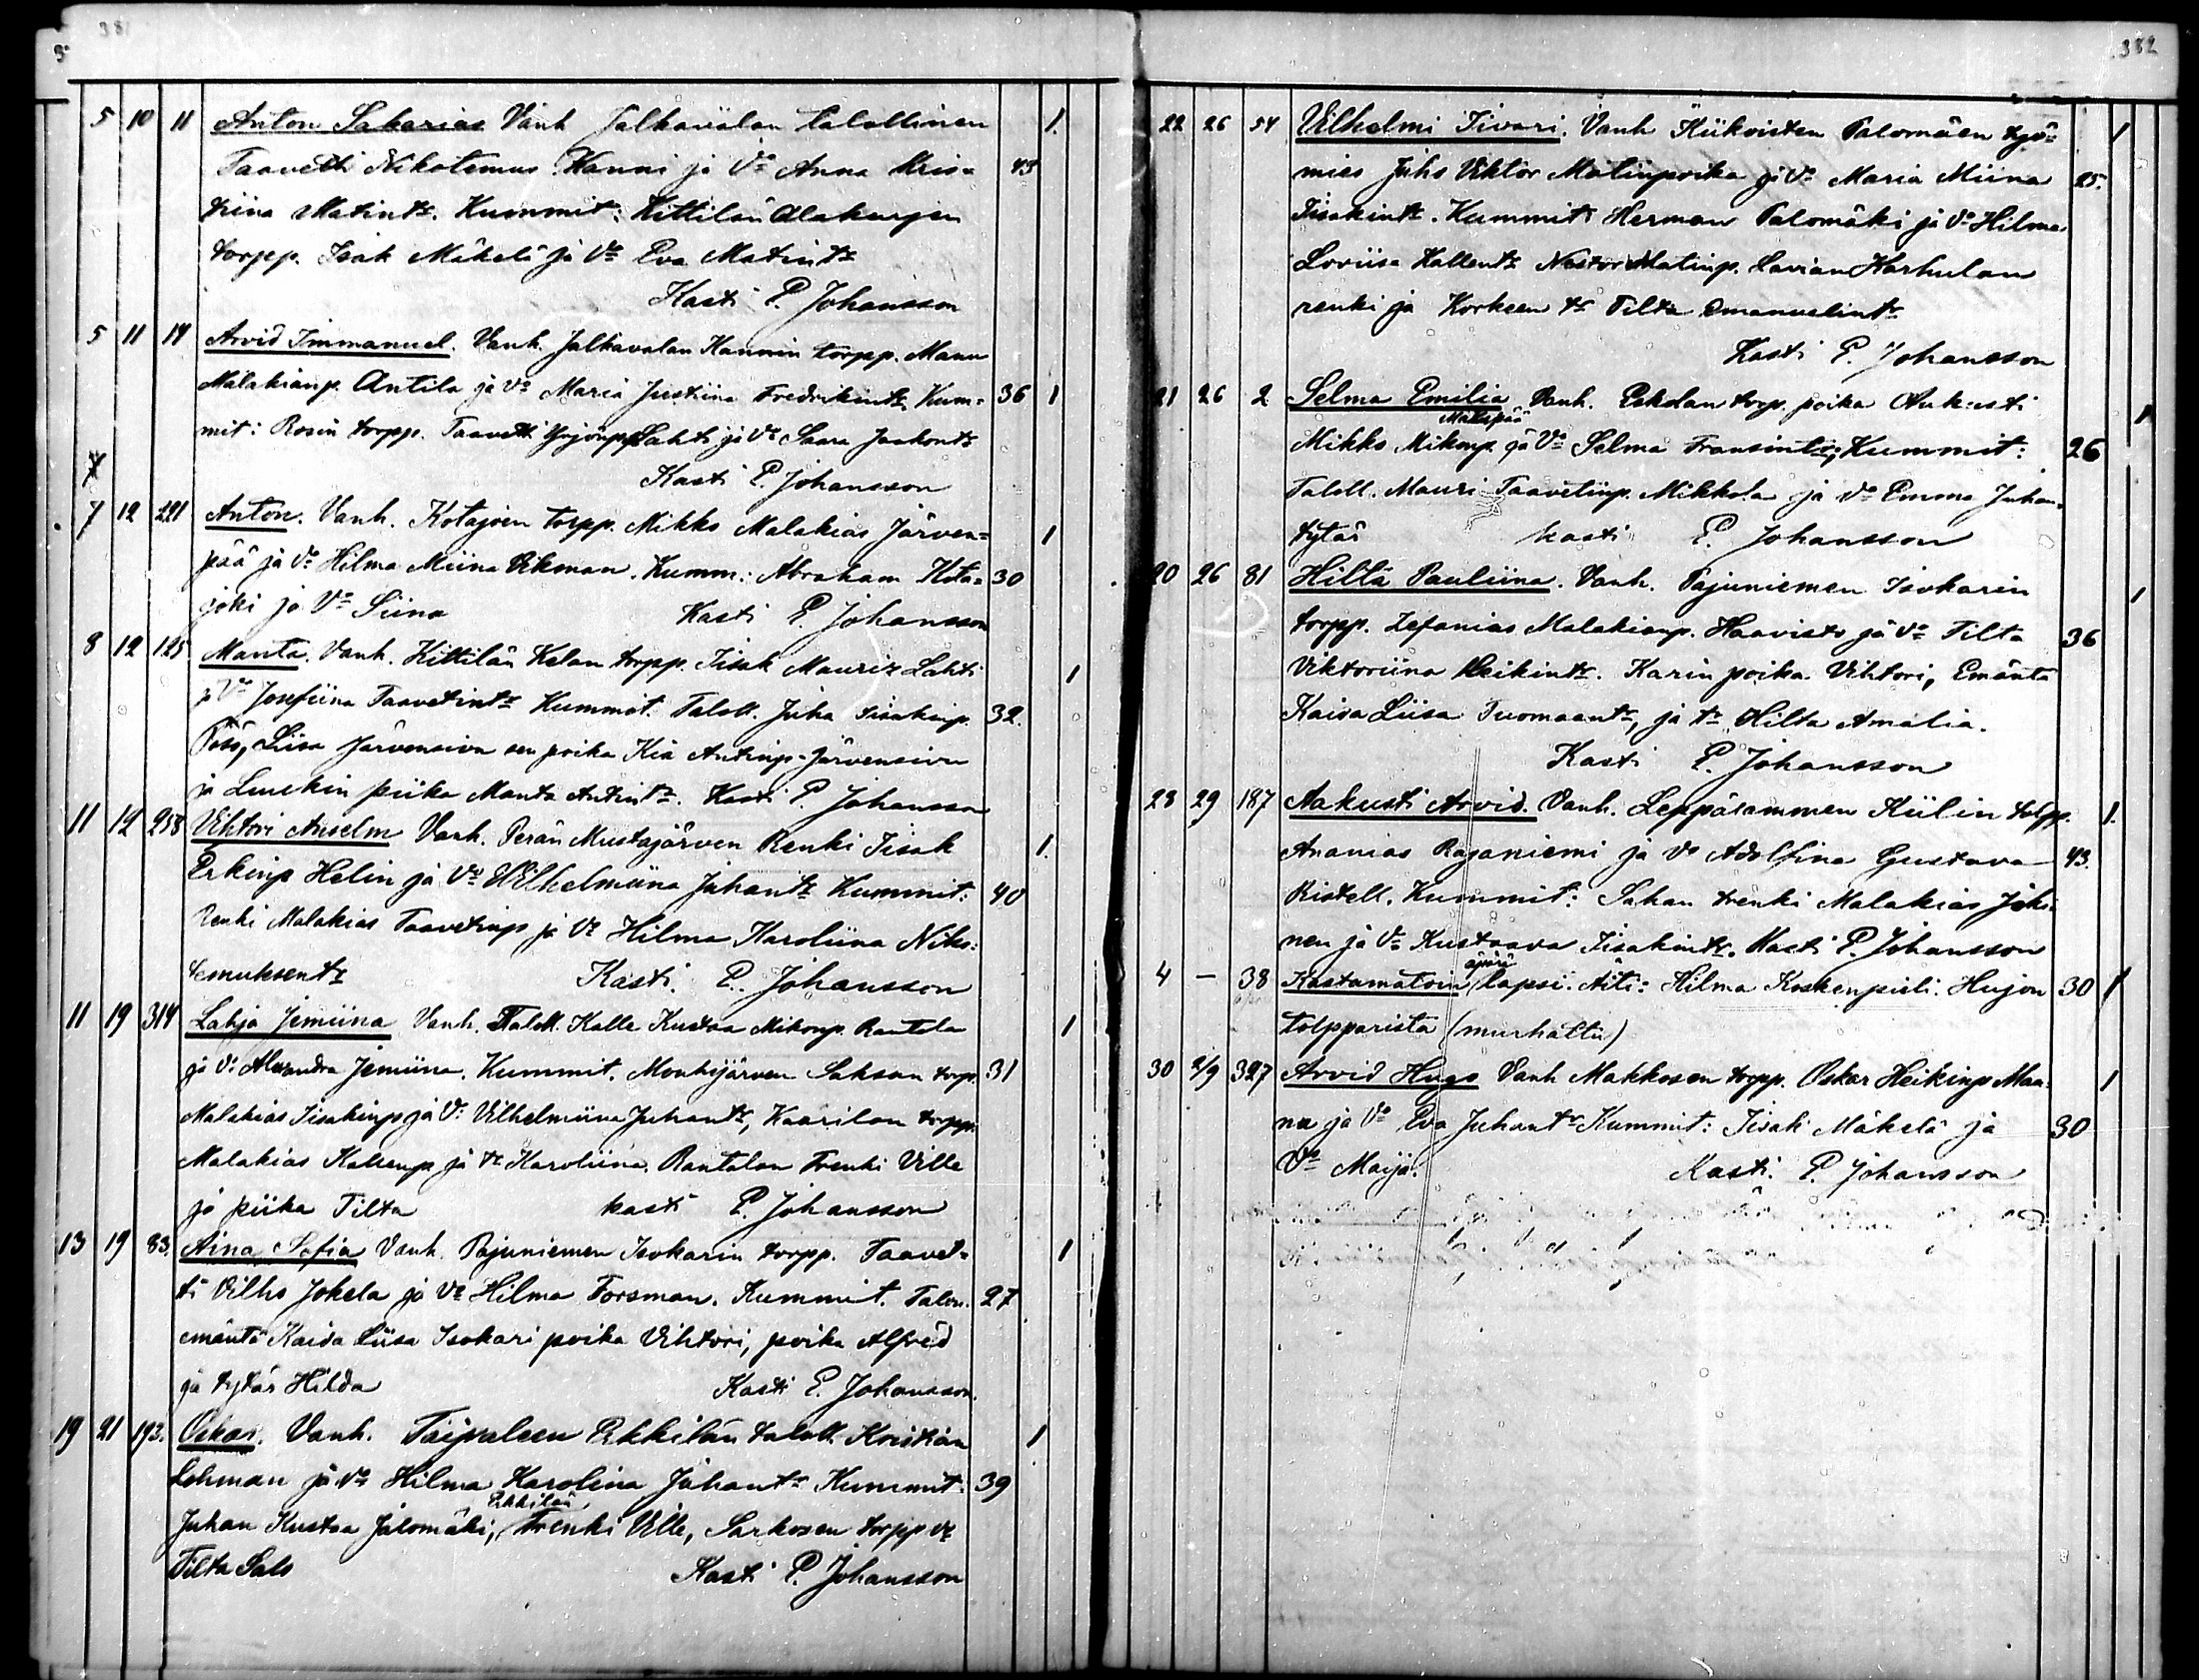 381
5 10 11 Anton Sakarias Vanh Jalkavälan talollinen 1.
Taavetti Nikotemus Hanni ja Vo Anna Kris= 43
tiina Matintr. Kummit: Kittilän Alakurjen
torpp. Isak Mäkelä ja Vo Eva Matintr
Kasti P. Johansson
5 11 14 Arvid Immanuel. Vanh. Jalkavalan Hannin torpp. Manu
Malakianp. Antila ja Vo Maria Justiina Fredrikintr. Kum= 36 1
mit: Rosin torpp. Taavetti Yrjönp. Lahti ja Vo Saara Jaakontr
Kasti P. Johansson
7 12 221 Anton. Vanh. Kotajoen torpp. Mikko Malakias Järven= 1
pää ja Vo Hilma Miina Vikman. Kumm.: Abraham Kota= 30
joki ja Vo Siina Kasti P. Johansson
8 12 125 Manta. Vanh. Kittilän Kelan torpp. Iisak Mauriz Lahti 1
ja Vo Josefiina Taavetintr Kummit. Taloll. Juha Iisakinp. 32.
Liisa Järvensivu sen poika Kiä Antinp. Järvensivu
ja piika Manta Antintr. Kasti P. Johansson
11 12 258 Vihtori Anselm Vanh. Perän Mustajärven Renki Iisak 1.
Erkinp Helin ja Vo Wilhelmiina Juhantr Kummit: 40
Renki Malakias Taavetinp ja Vo Hilma Karoliina Niko=
temuksentr Kasti. P. Johansson
11 19 314 Lahja Jemiina Vanh. Taloll. Kalle Kustaa Mikonp. Rantala 1
ja Vo Alexandra Jemiina. Kummit. Mouhijärven Saksan torp. 31
Malakias Iisakinp ja Vo Vilhelmiina Juhantr, Kaarilan torpp.
Malakias Kallenp ja tr Karoliina. Rantalan trenki Ville
ja piika Tilta kasti P. Johansson
13 19 83. Aina Sofia Vanh. Pajuniemen Isokarin torpp. Taavet= 1
ti Vilho Jokela ja Vo Hilma Forsman. Kummit. Talon. 27
emäntä Kaisa Liisa Isokari poika Vihtori, poika Alfred
ja tytär Hilda Kasti P. Johansson.
19 21 193. Oskar. Vanh. Taipaleen Pekkilän taloll. Kristian 1
Lehman ja Vo Hilma Karolina Juhantr Kummit. 39
Pekkilän
Juhan Kustaa Jalomäki, trenki Ville, Sarkosen torpp Vo
Tilta Salo Kasti P. Johansson
382
22 26 54 Vilhelmi Iivari. Vanh Kiikoisten Palomäen työ= 1
mies Juho Viktor Matinpoika ja Vo Maria Miina 25.
Iisakintr. Kummit: Herman Palomäki ja Vo Hilma
Loviisa Kallentr Nestor Matinp. Lavian Karhulan
renki ja Korkeen tr Tilta Emanuelintr
Kasti P. Johansson
21 26 2 Selma Emilia Vanh. Eskolan torp. poika Aukusti 1
Mikko Mikonp. ja Vo Selma Fransintr; Kummit: 26
Taloll. Mauri Taavetinp. Mikkola ja Vo Emma Juhan=
tytär kasti P. Johansson
20 26 81 Hilta Pauliina. Vanh. Pajuniemen Isokarin 1
torpp. Zefanias Malakianp. Haavisto ja Vo Tilta 36
Viktoriina Heikintr. Karin poika Vihtori, Emäntä
Kaisa Liisa Tuomaantr, ja tr Hilta Amalia.
Kasti P. Johansson
28 29 187 Aakusti Arvid. Vanh. Leppäsammen Kiilin tolpp. 1.
Ananias Rajaniemi ja Vo Adolfina Gustava 43.
Ristell. Kummit: Sahan trenki Malakias Joki=
nen ja Vo Kustaava Iisakintr. Kasti P. Johansson
äpärä
4 — 38 Kastamatoin lapsi. Äiti: Hilma Koskenpieli. Hujon 30 1
tolpparista (murhattu)
30 2/9 327 Arvid Hugo Vanh Makkosen torpp. Oskar Heikinp Man= 1
nu ja Vo Eva Juhantr Kummit: Iisak Mäkelä ja 30
Vo Maija. Kasti. P. Johansson